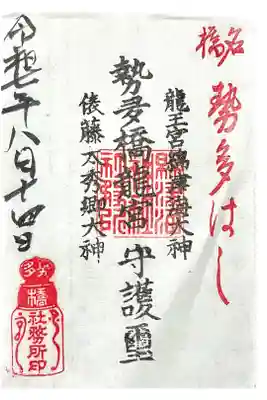 名橋
勢多はし
龍王宮秀郷社大神
勢多橋龍宮守護璽
俵藤太秀郷大神
令和七年八月十四日
勢多橋
社務所印